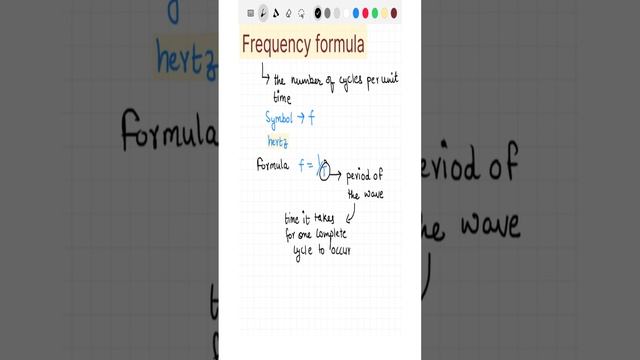 Frequency formula
the number of cycles per unit
time
Symbol → f
hertz
Formula f = 1/T → period of
the wave
time it takes
for one complete
cycle to occur
hertz
formula
eriod of
he wave